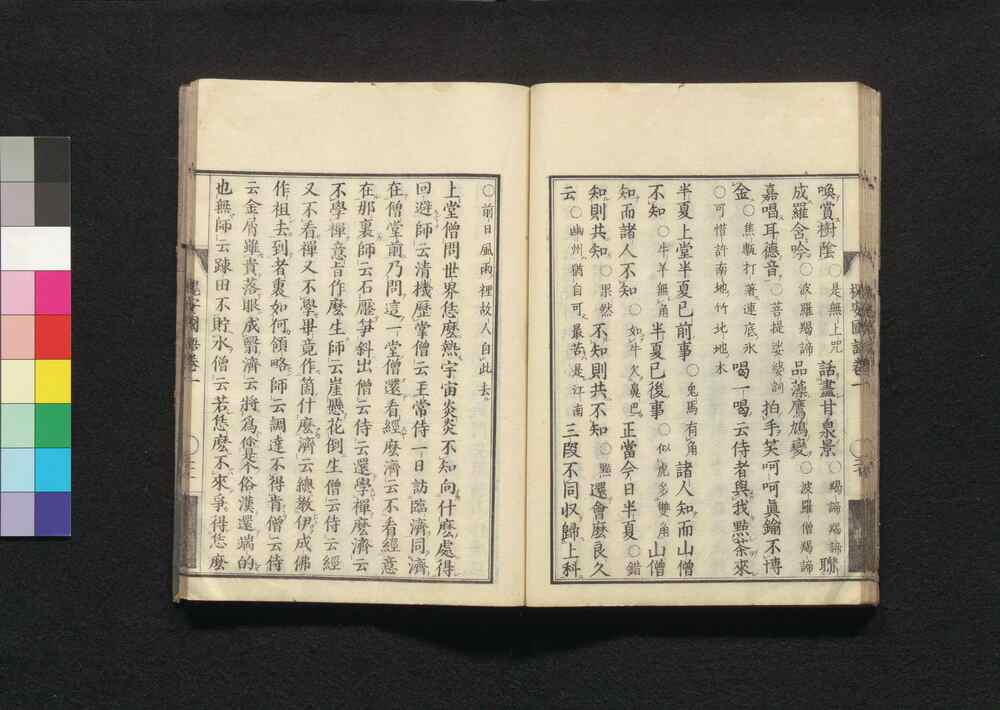 喚賞樹蔭○是無上咒話盡甘泉景○羯諦羯諦聯
成羅含吟○波羅羯諦品藻鷹鳩變○波羅僧羯諦
嘉唱耳德音○菩提娑婆訶拍手笑呵呵眞鍮不博
金○焦甎打著連底氷喝一喝云侍者與我㸃茶來
○可惜許南地竹北地木
半夏上堂半夏已前事○兎馬有角諸人知而山僧
不知○牛羊無角半夏已後事○似虎多雙角山僧
知而諸人不知○如牛欠鼻巴正當今日半夏○錯
知則共知○果然不知則共不知○㸃還會麽良久
云○幽州猶自可最苦是江南三段不同収歸上科
槐安國語卷一
○前日風雨裡故人自此去
上堂僧問世界恁麽熱宇宙炎炎不知向什麽處得
回避師云清機歷掌僧云王常侍一日訪臨濟同濟
在僧堂前乃問這一堂僧還看經麽濟云不看經意
在那裏師云石壓笋斜出僧云侍云還學禪麽濟云
不學禪意旨作麽生師云崖懸花倒生僧云侍云經
又不看禪又不學畢竟作箇什麽濟云總教伊成佛
作祖去到者裏如何領略師云調達不得肯僧云侍
云金屑雖貴落眼成翳濟云將爲你是个俗漢還端的
也無師云踈田不貯水僧云若恁麽不來爭得恁麽
槐安國語卷一